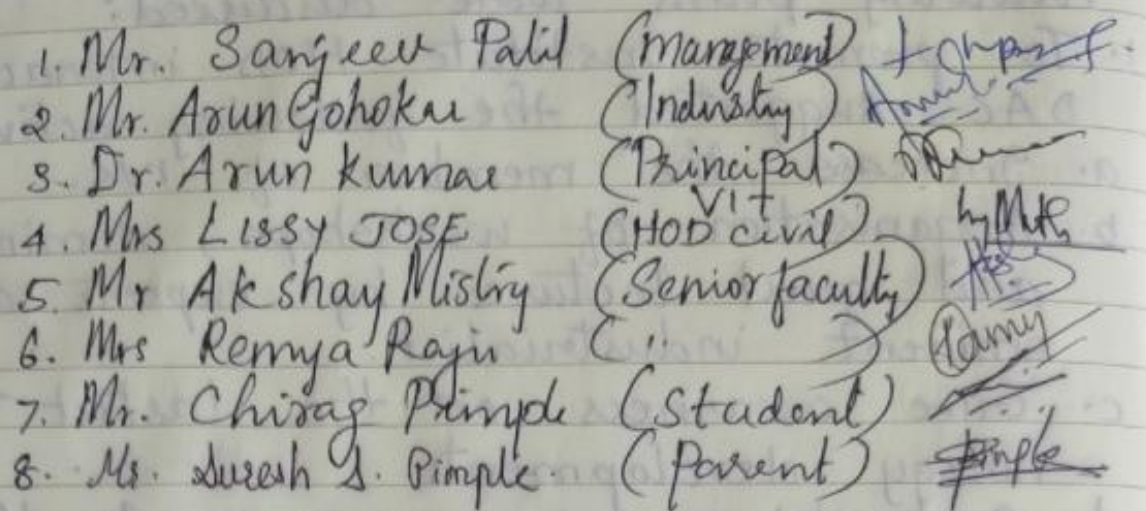 1. Mr. Sanjeev Patil (Management)
2. Mr. Arun Gohokar (Industry)
3. Dr. Arun Kumar (Principal) VIT
4. Mrs LISSY JOSE (HOD civil)
5. Mr Akshay Mistry (Senior faculty)
6. Mrs Remya Raju ( " )
7. Mr. Chirag Pimple (Student)
8. Mr. Suresh S. Pimple. (Parent) Pimple